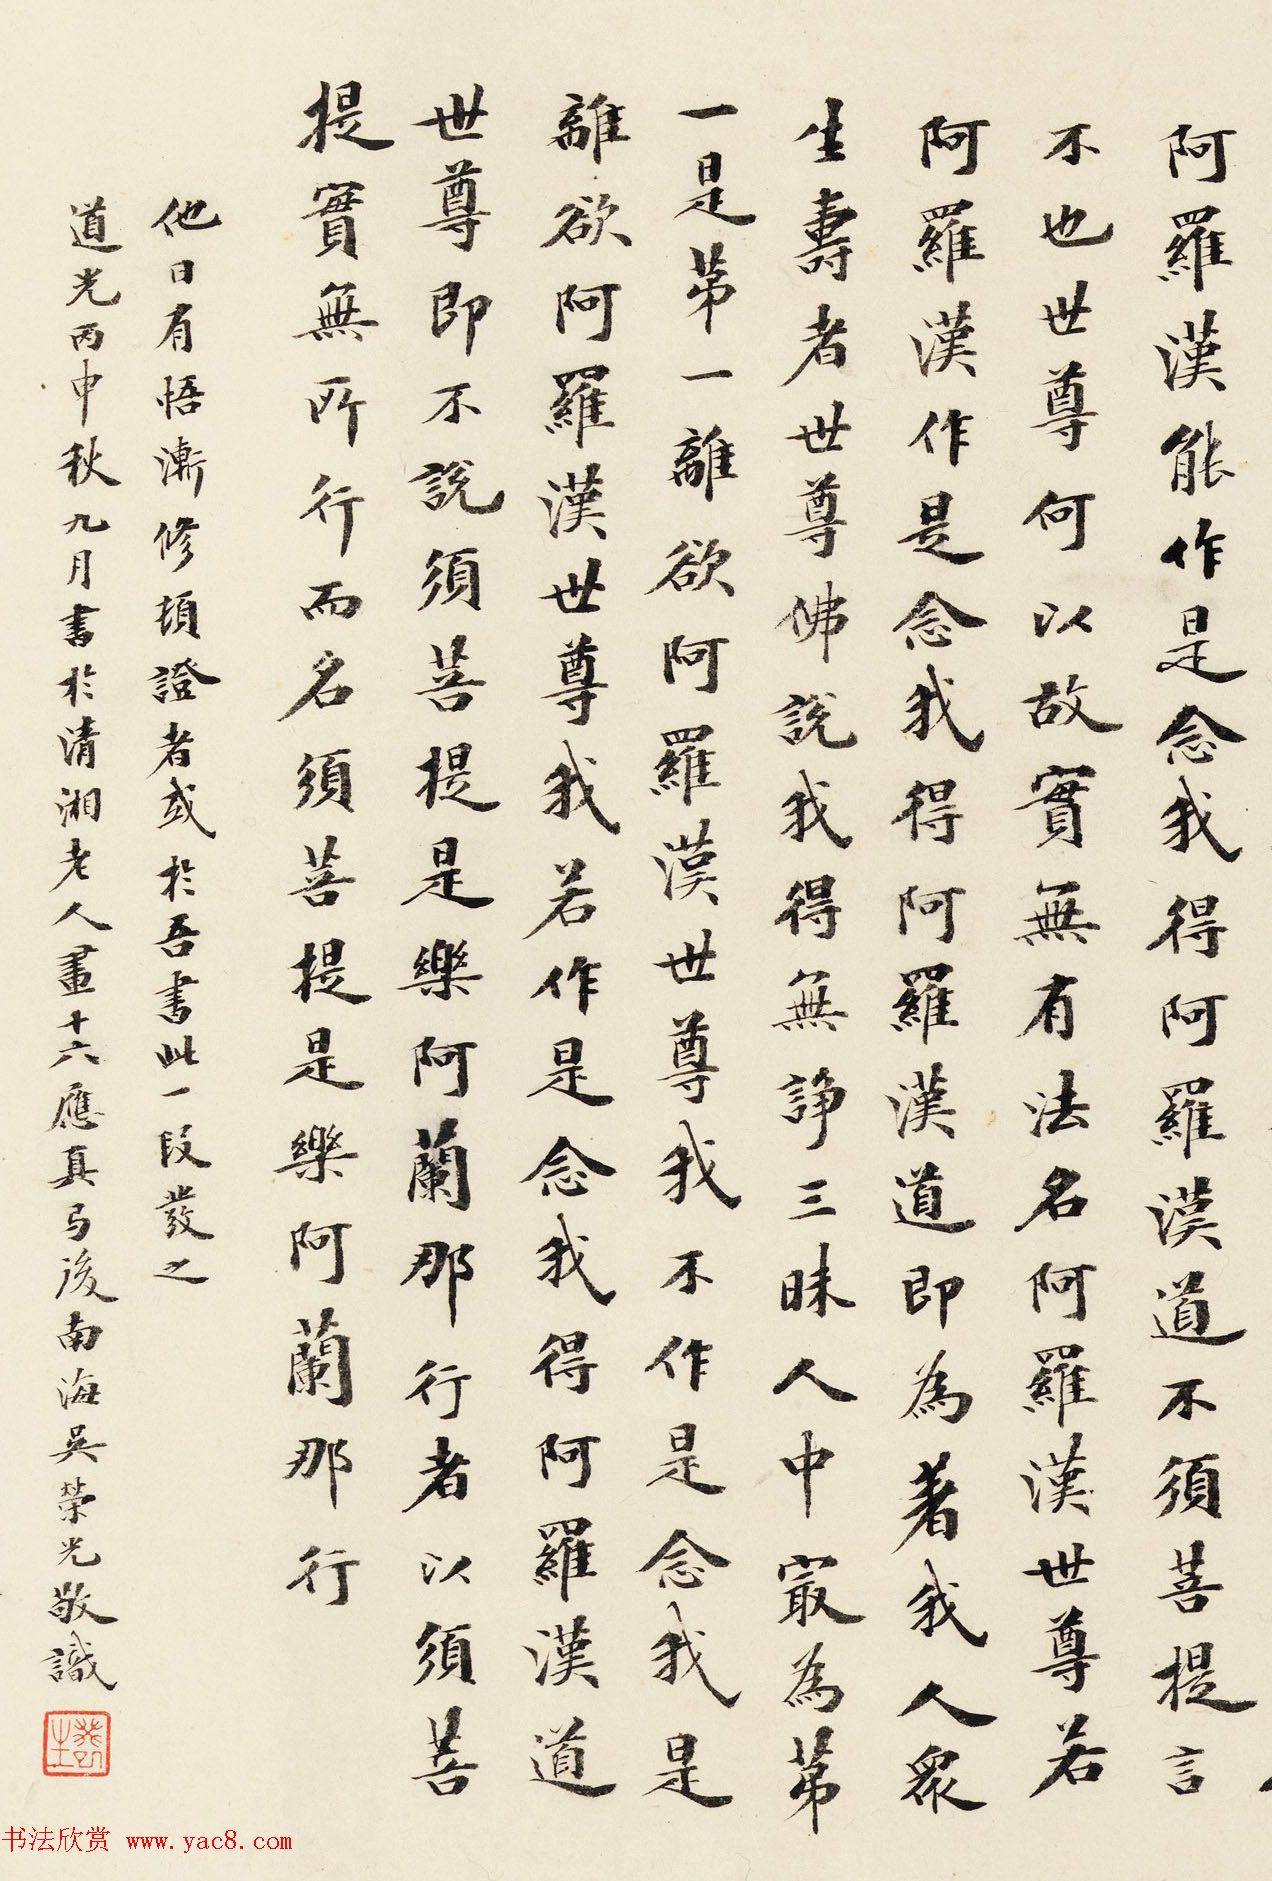 阿羅漢能作是念我得阿羅漢道不須菩提言
不也世尊何以故實無有法名阿羅漢世尊若
阿羅漢作是念我得阿羅漢道即為著我人衆
生壽者世尊佛說我得無諍三昧人中冣為苐
一是苐一離欲阿羅漢世尊我不作是念我是
離欲阿羅漢世尊我若作是念我得阿羅漢道
世尊即不說須菩提是樂阿蘭那行者以須菩
提實無所行而名須菩提是樂阿蘭那行
他日有悟漸修頓證者或於吾書此一段發之
道光丙申秋九月書於清湘老人畫十六應真弓後南海吳榮光敬識
书法欣赏 www.yac8.com